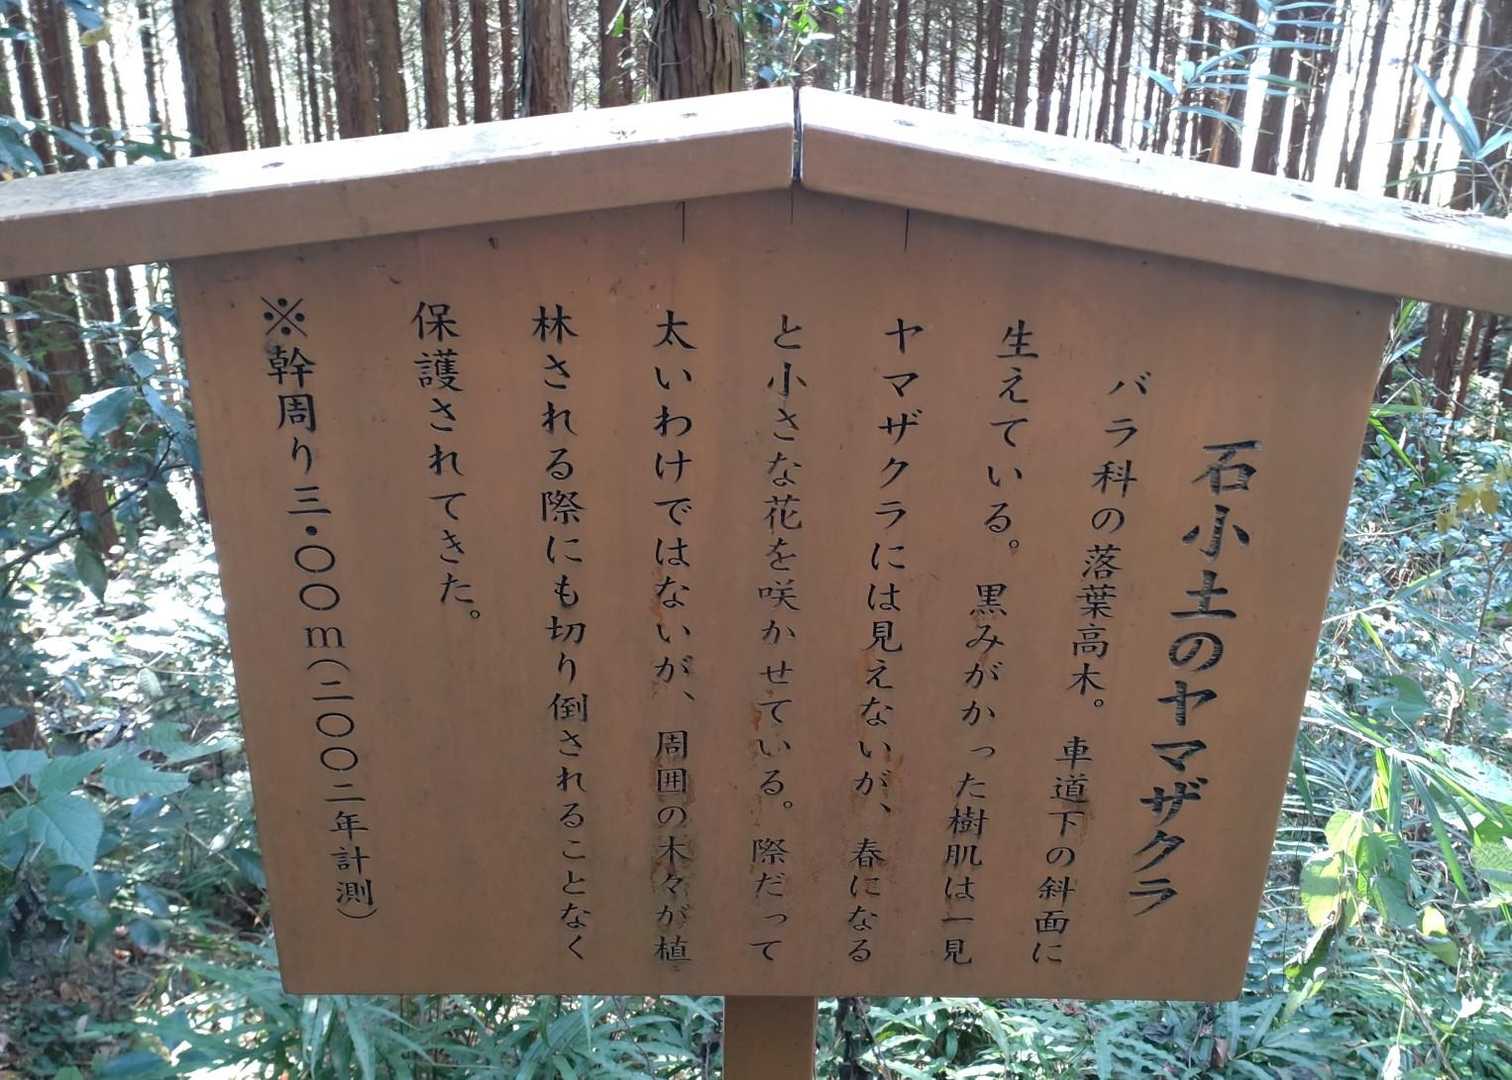 石小土のヤマザクラ
バラ科の落葉高木。車道下の斜面に
生えている。黒みがかった樹肌は一見
ヤマザクラには見えないが、春になる
と小さな花を咲かせている。際だって
太いわけではないが、周囲の木々が植
林される際にも切り倒されることなく
保護されてきた。
※幹周り三・〇〇m(二〇〇二年計測)